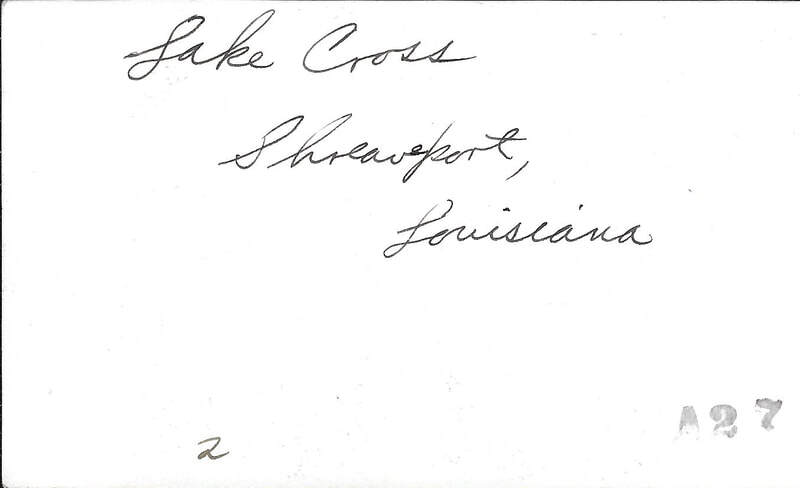 Lake Cross
Shreaveport,
Louisiana
2
A27